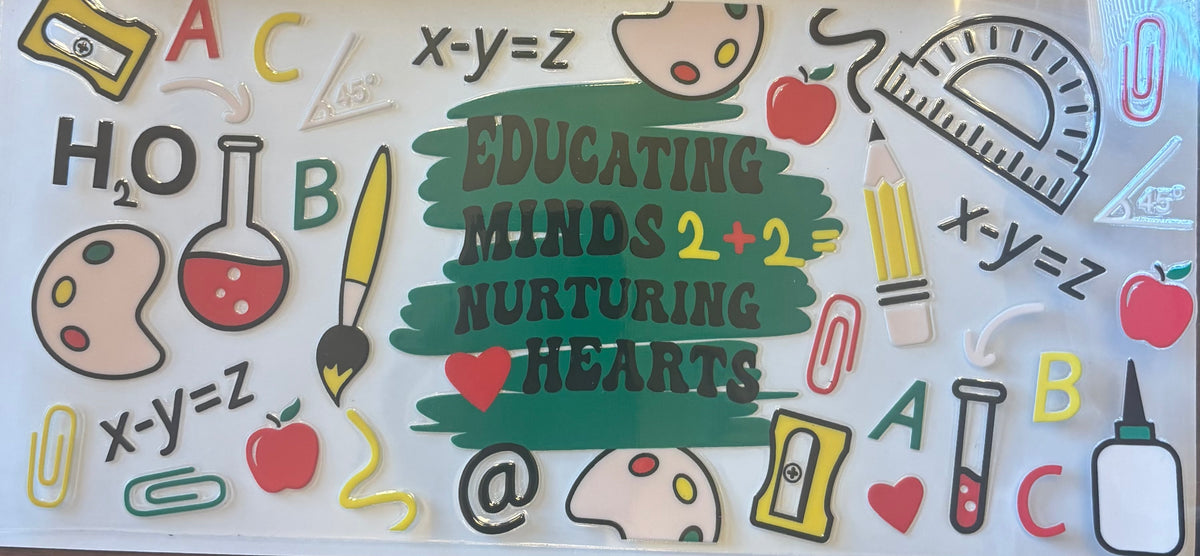 A
C
x-y=z
45°
H2O
B
EDUCATING
MINDS 2+2=
NURTURING
HEARTS
45°
x-y=z
x-y=z
B
A
C
@